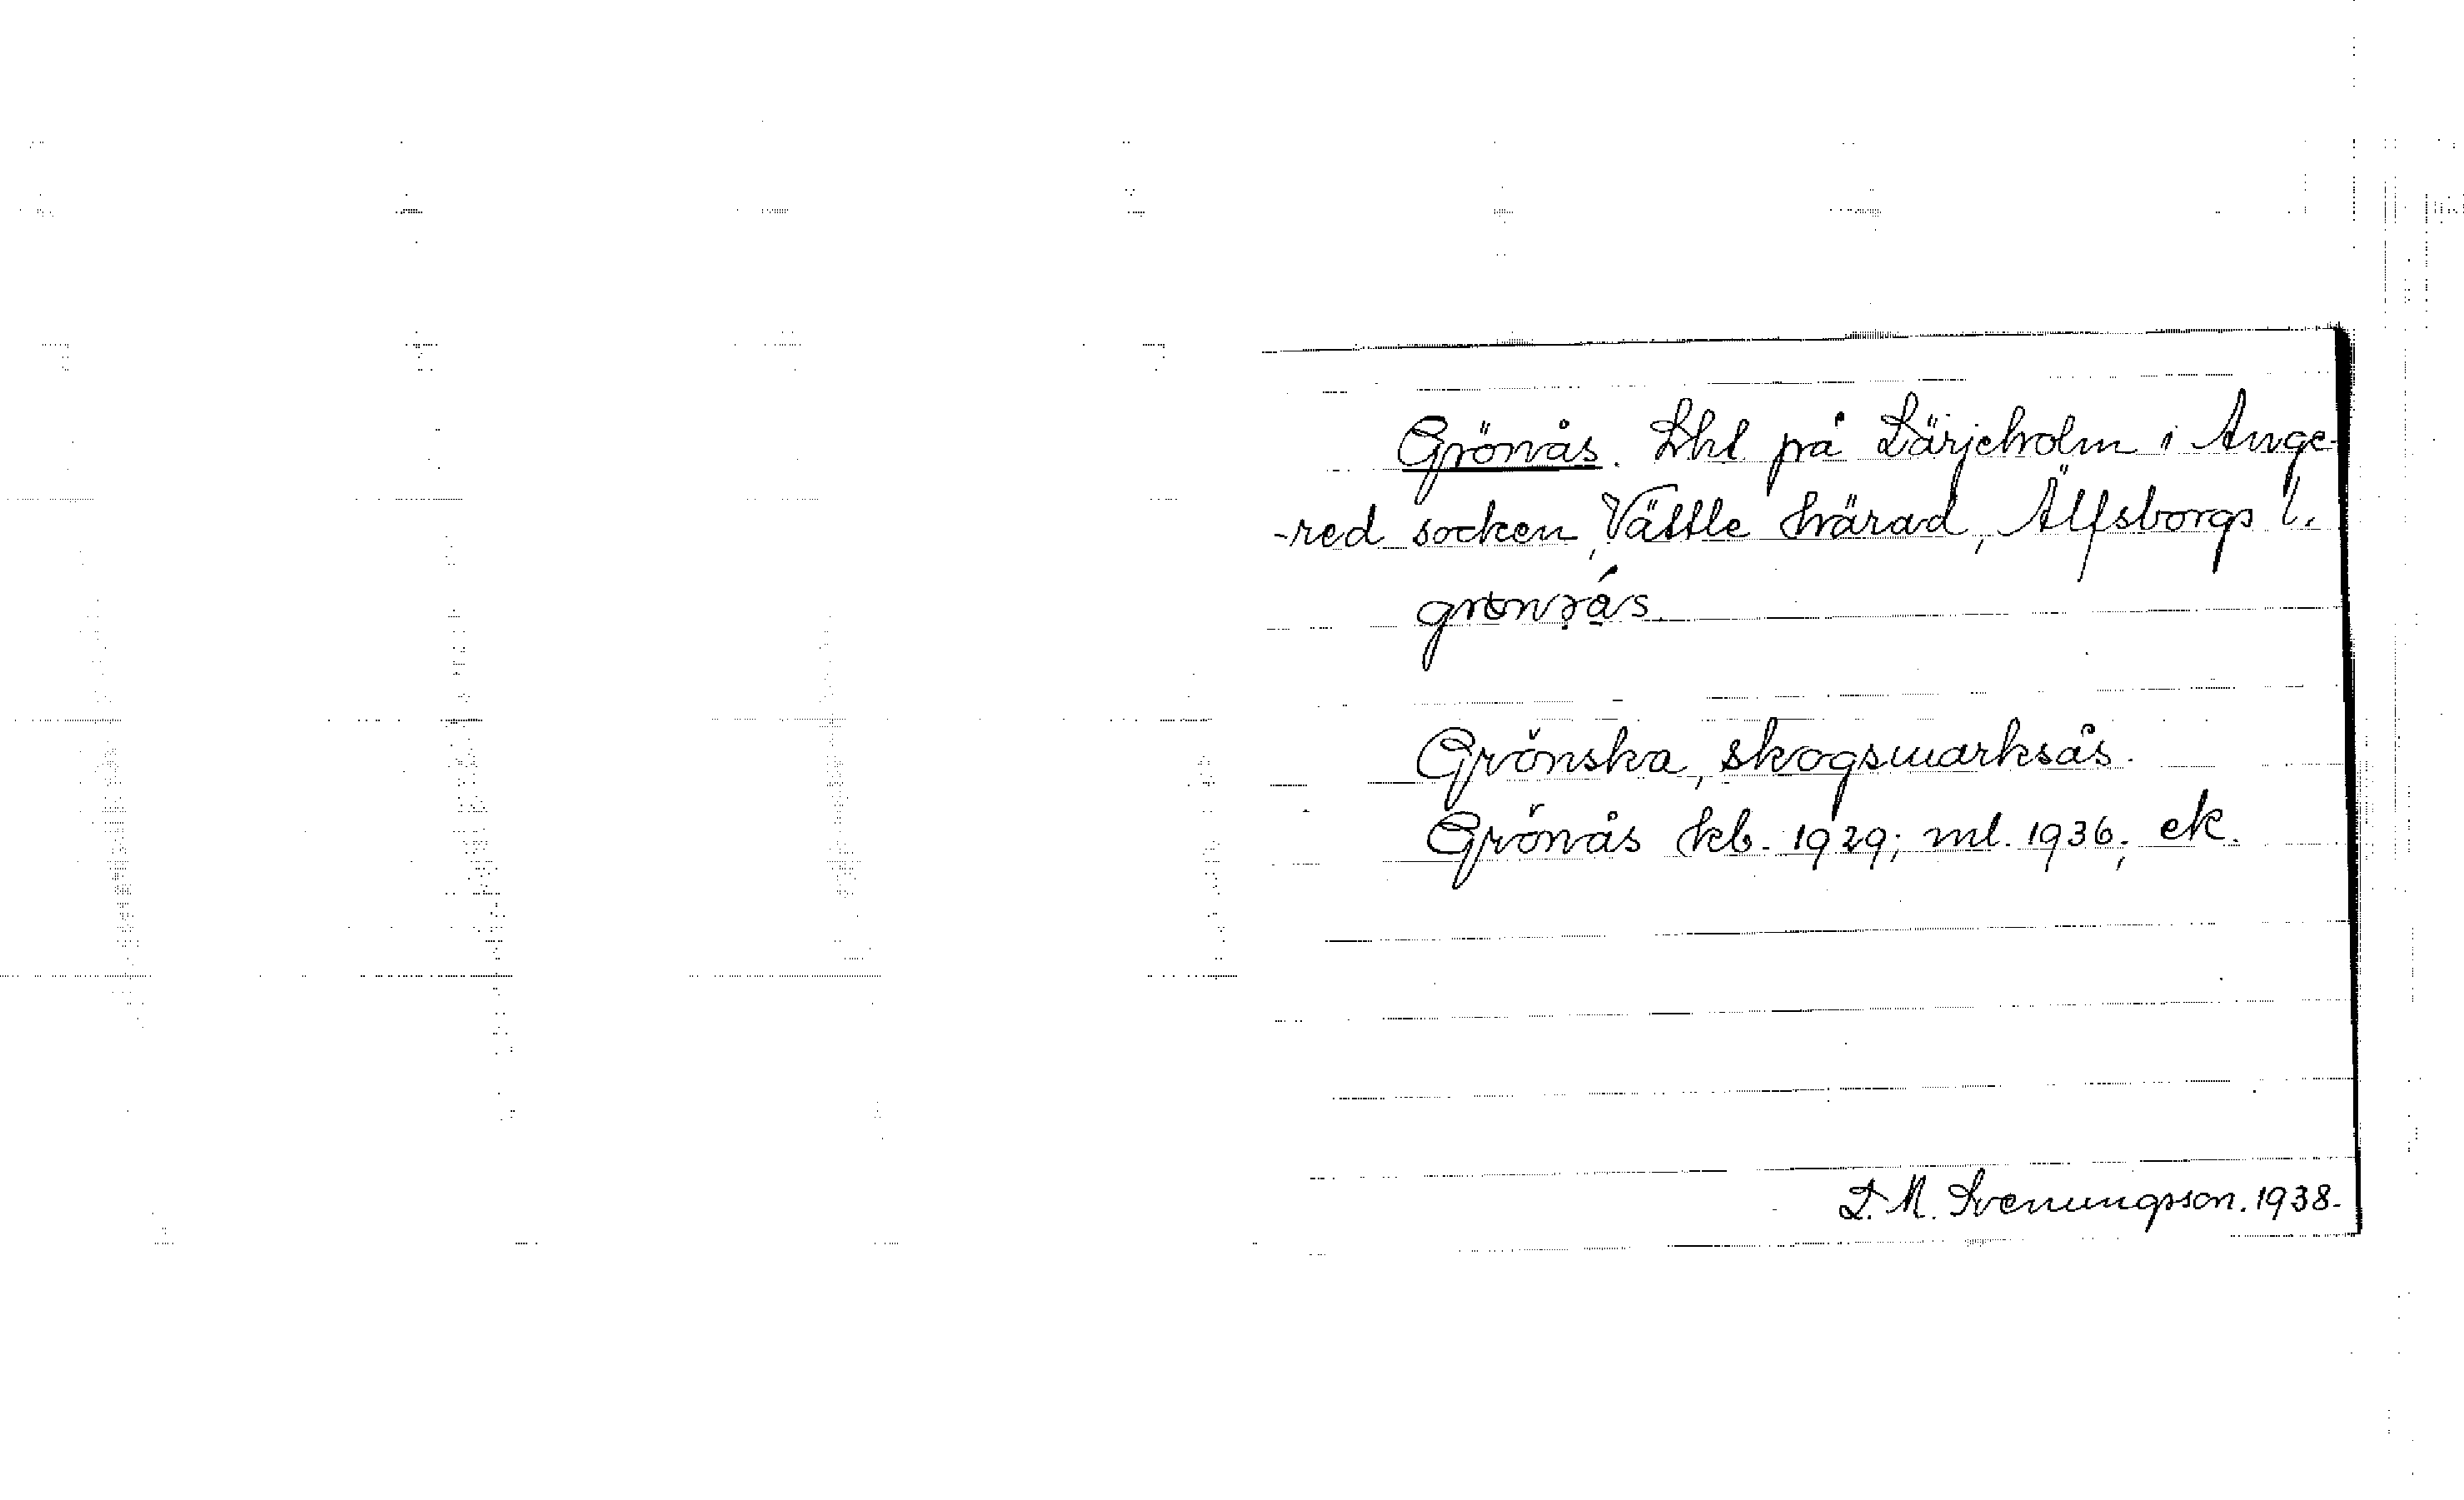 Grönås. Lhl på Lärjeholm i Ange-
-red socken, Vättle härad, Älfsborgs l.
Grönska, skogsmarksås.
Grönås kb. 1929; ml. 1936; ek.
L. M. Svenungsson. 1938.